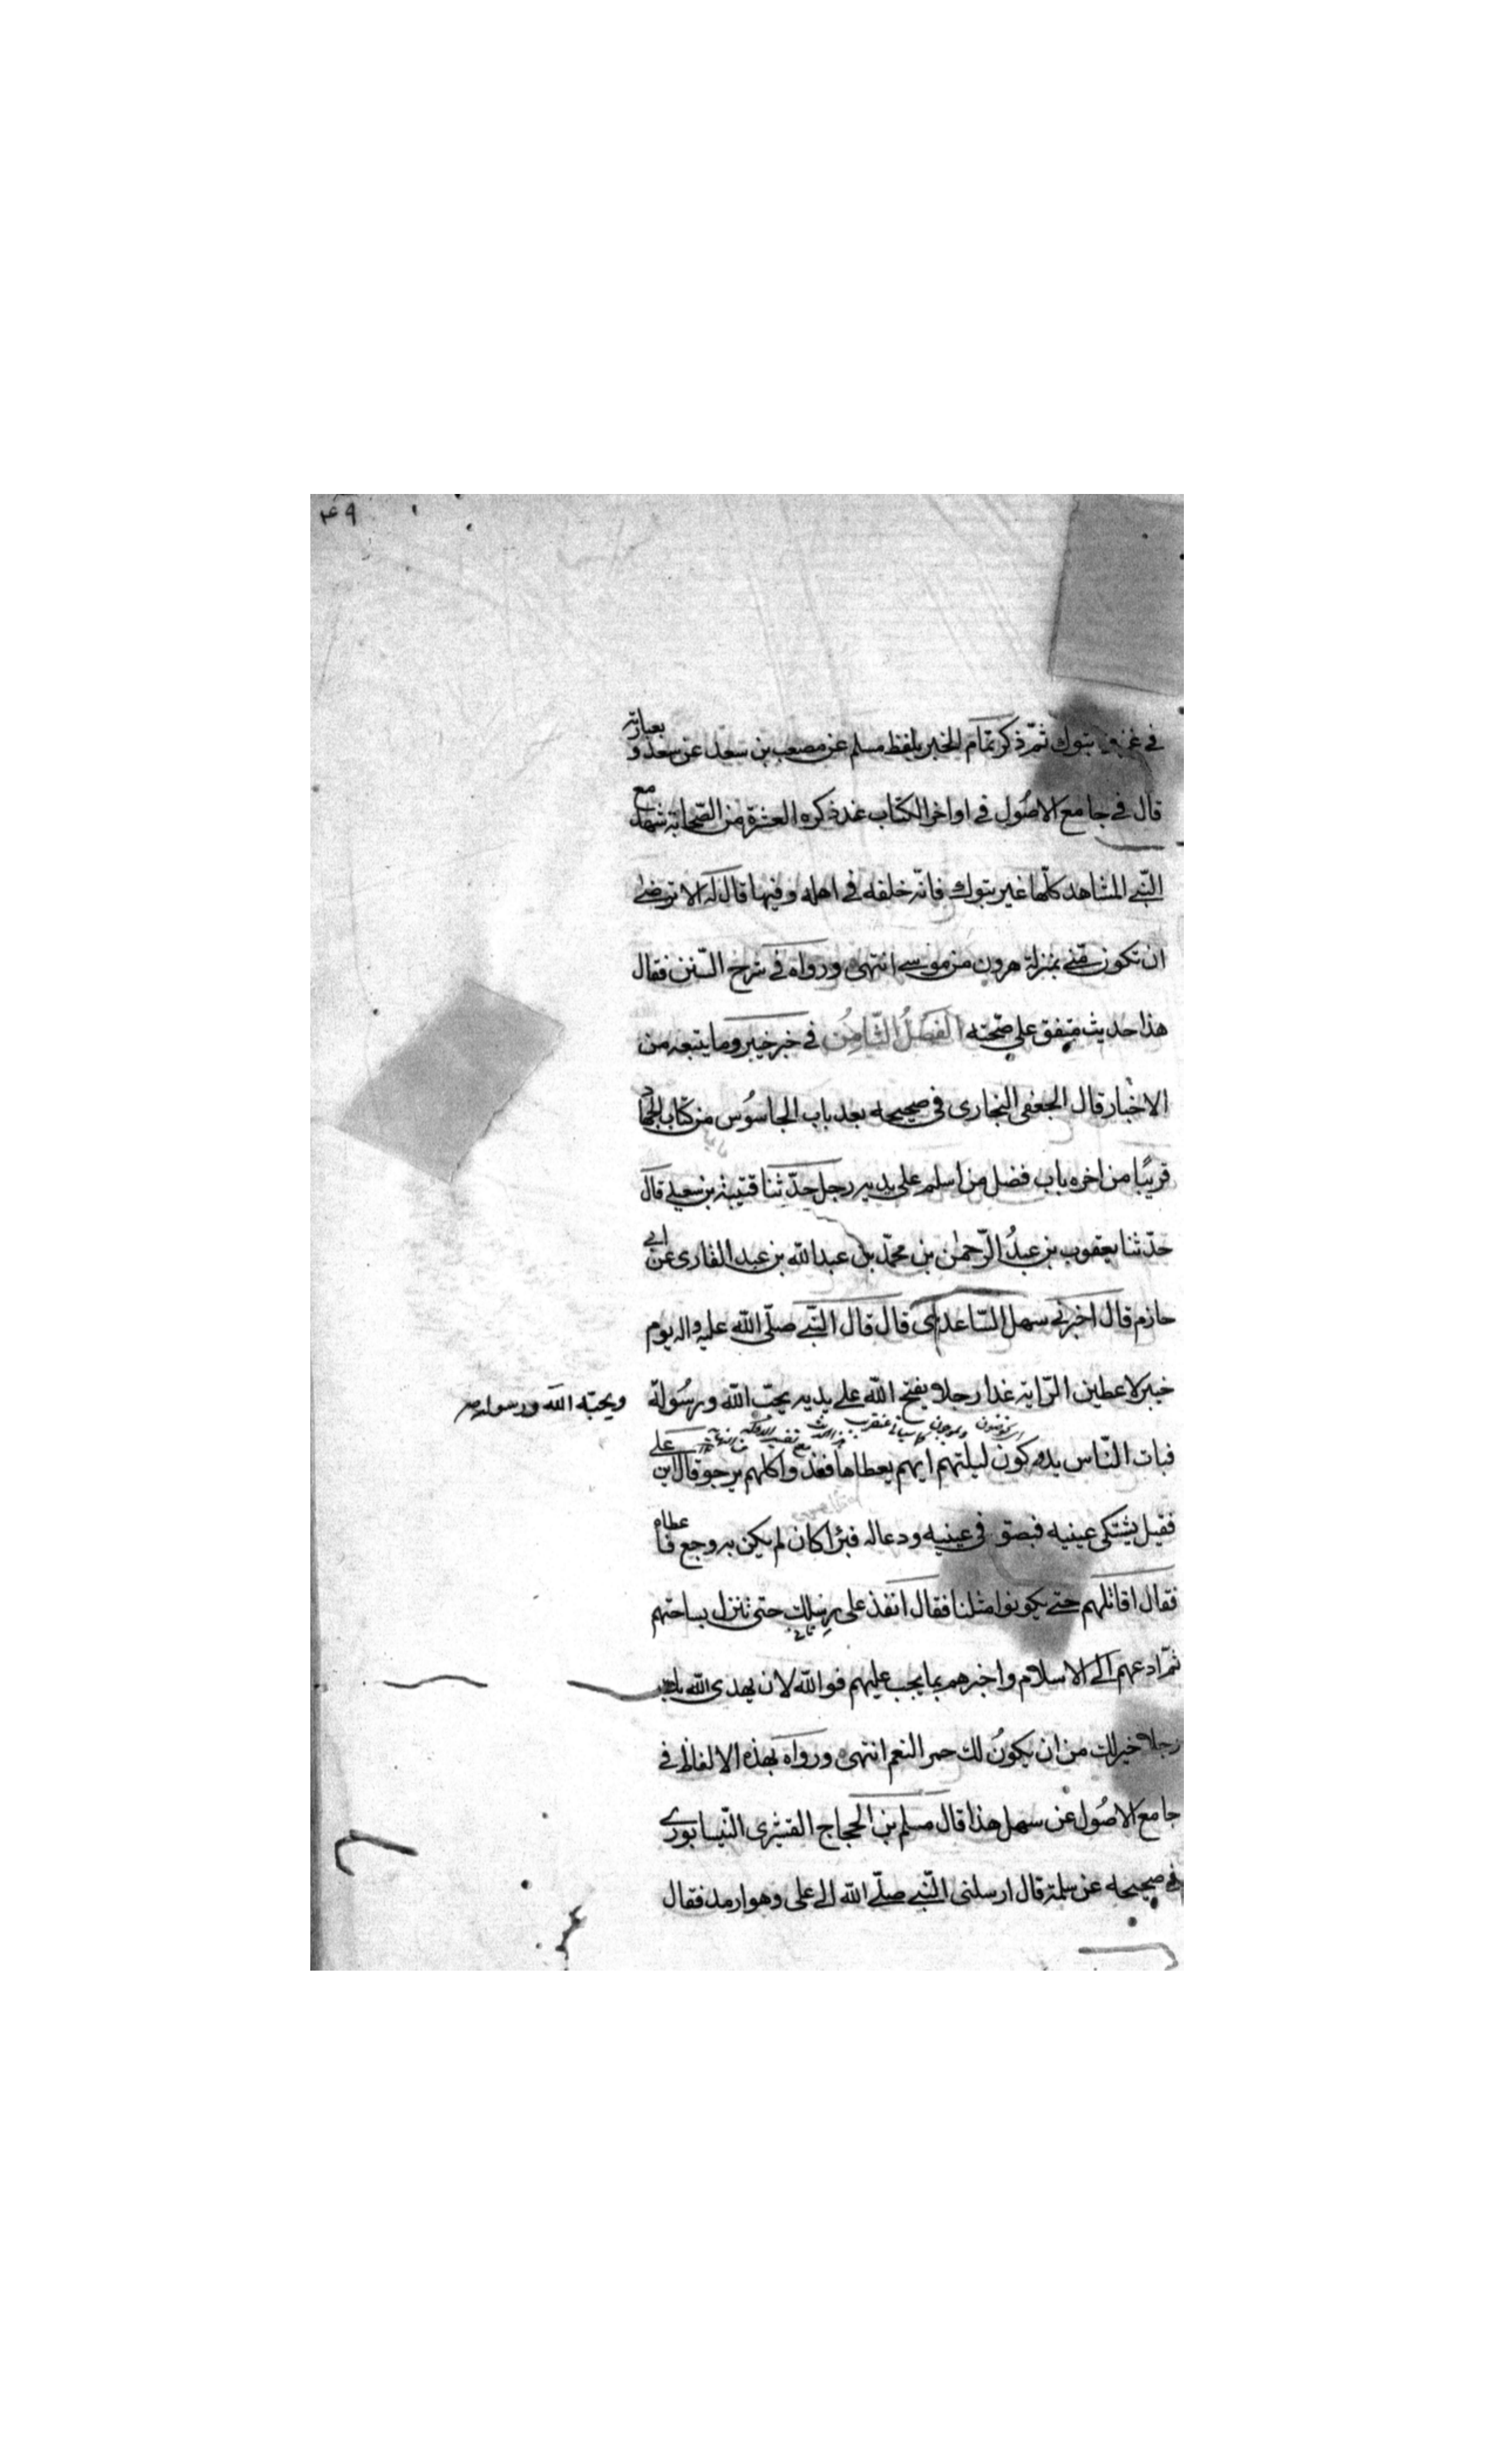 ٤٩
في غزوة تبوك ثمّ ذكر تمام الخبر بلفظ مسلم عن مصعب بن سعد عن سعد و بعبارته
قال في جامع الاصُول في اواخر الكتاب عند ذكره العشرة من الصّحابة شهد مع
النّبي المشاهد كلّها غير تبوك فانّه خلفه في اهله وفيها قال له الا ترضى
ان تكون منّي بمنزلة هرون من موسى انتهى ورواه في شرح السّنن فقال
هذا حديث متفق على صحّته الفَصلُ الثّامِنُ في خبر خيبر وما يتبعه من
الاخبار قال الجعفي البخاري في صحيحه بعد باب الجاسُوس من كتاب الجهاد
قريبًا من اخره باب فضل من اسلم على يديه رجل حدّثنا قتيبة بن سعيد قال
حدّثنا يعقوب بن عبدُ الرّحمٰن بن محمّد بن عبد الله بن عبد القارى عن ابي
حازم قال اخبرني سهل السّاعدى قال قال النّبي صلّى الله عليه واله يوم
خيبر لاعطين الرّاية غدا رجلا يفتح الله على يديه يحبّ الله ورسُوله
ويحبّه الله ورسوله
فبات النّاس يدوكون ليلتهم ايهم يعطاها فغدوا كلهم يرجو قال اين على
فقيل يشتكى عينيه فبصق في عينيه ودعا له فبرٔا كان لم يكن به وجع فاعطاه
فقال اقاتلهم حتى يكونوا مثلنا فقال انفذ على رِسلك حتى تنزل بساحتهم
ثمّ ادعهم الى الاسلام واخبرهم بما يجب عليهم فوالله لان يهدى الله بك
رجلا خير لك من ان يكونُ لك حمر النعم انتهى ورواه بهذه الالفاظ في
جامع الاصُول عن سهل هذا قال مسلم بن الحجاج القشيرى النّيسابوري
في صحيحه عن سلمة قال ارسلنى النّبي صلّى الله الى على وهو ارمد فقال